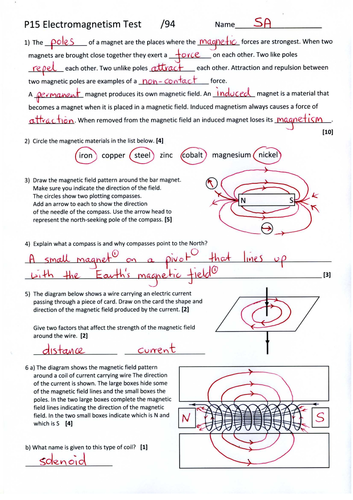 P15 Electromagnetism Test /94 Name SA
1) The poles of a magnet are the places where the magnetic forces are strongest. When two
magnets are brought close together they exert a force on each other. Two like poles
repel each other. Two unlike poles attract each other. Attraction and repulsion between
two magnetic poles are examples of a non-contact force.
A permanent magnet produces its own magnetic field. An induced magnet is a material that
becomes a magnet when it is placed in a magnetic field. Induced magnetism always causes a force of
attraction. When removed from the magnetic field an induced magnet loses its magnetism.
[10]
2) Circle the magnetic materials in the list below. [4]
iron copper steel zinc cobalt magnesium nickel
3) Draw the magnetic field pattern around the bar magnet.
Make sure you indicate the direction of the field.
The circles show two plotting compasses.
Add an arrow to each to show the direction
of the needle of the compass. Use the arrow head to
represent the north-seeking pole of the compass. [5]
N S
4) Explain what a compass is and why compasses point to the North?
A small magnet on a pivot that lines up
with the Earth's magnetic field [3]
5) The diagram below shows a wire carrying an electric current
passing through a piece of card. Draw on the card the shape and
direction of the magnetic field produced by the current. [2]
Give two factors that affect the strength of the magnetic field
around the wire. [2]
distance current
6 a) The diagram shows the magnetic field pattern
around a coil of current carrying wire The direction
of the current is shown. The large boxes hide some
of the magnetic field lines and the small boxes the
poles. In the two large boxes complete the magnetic
field lines indicating the direction of the magnetic
field. In the two small boxes indicate which is N and
which is S [4]
N S
b) What name is given to this type of coil? [1]
solenoid